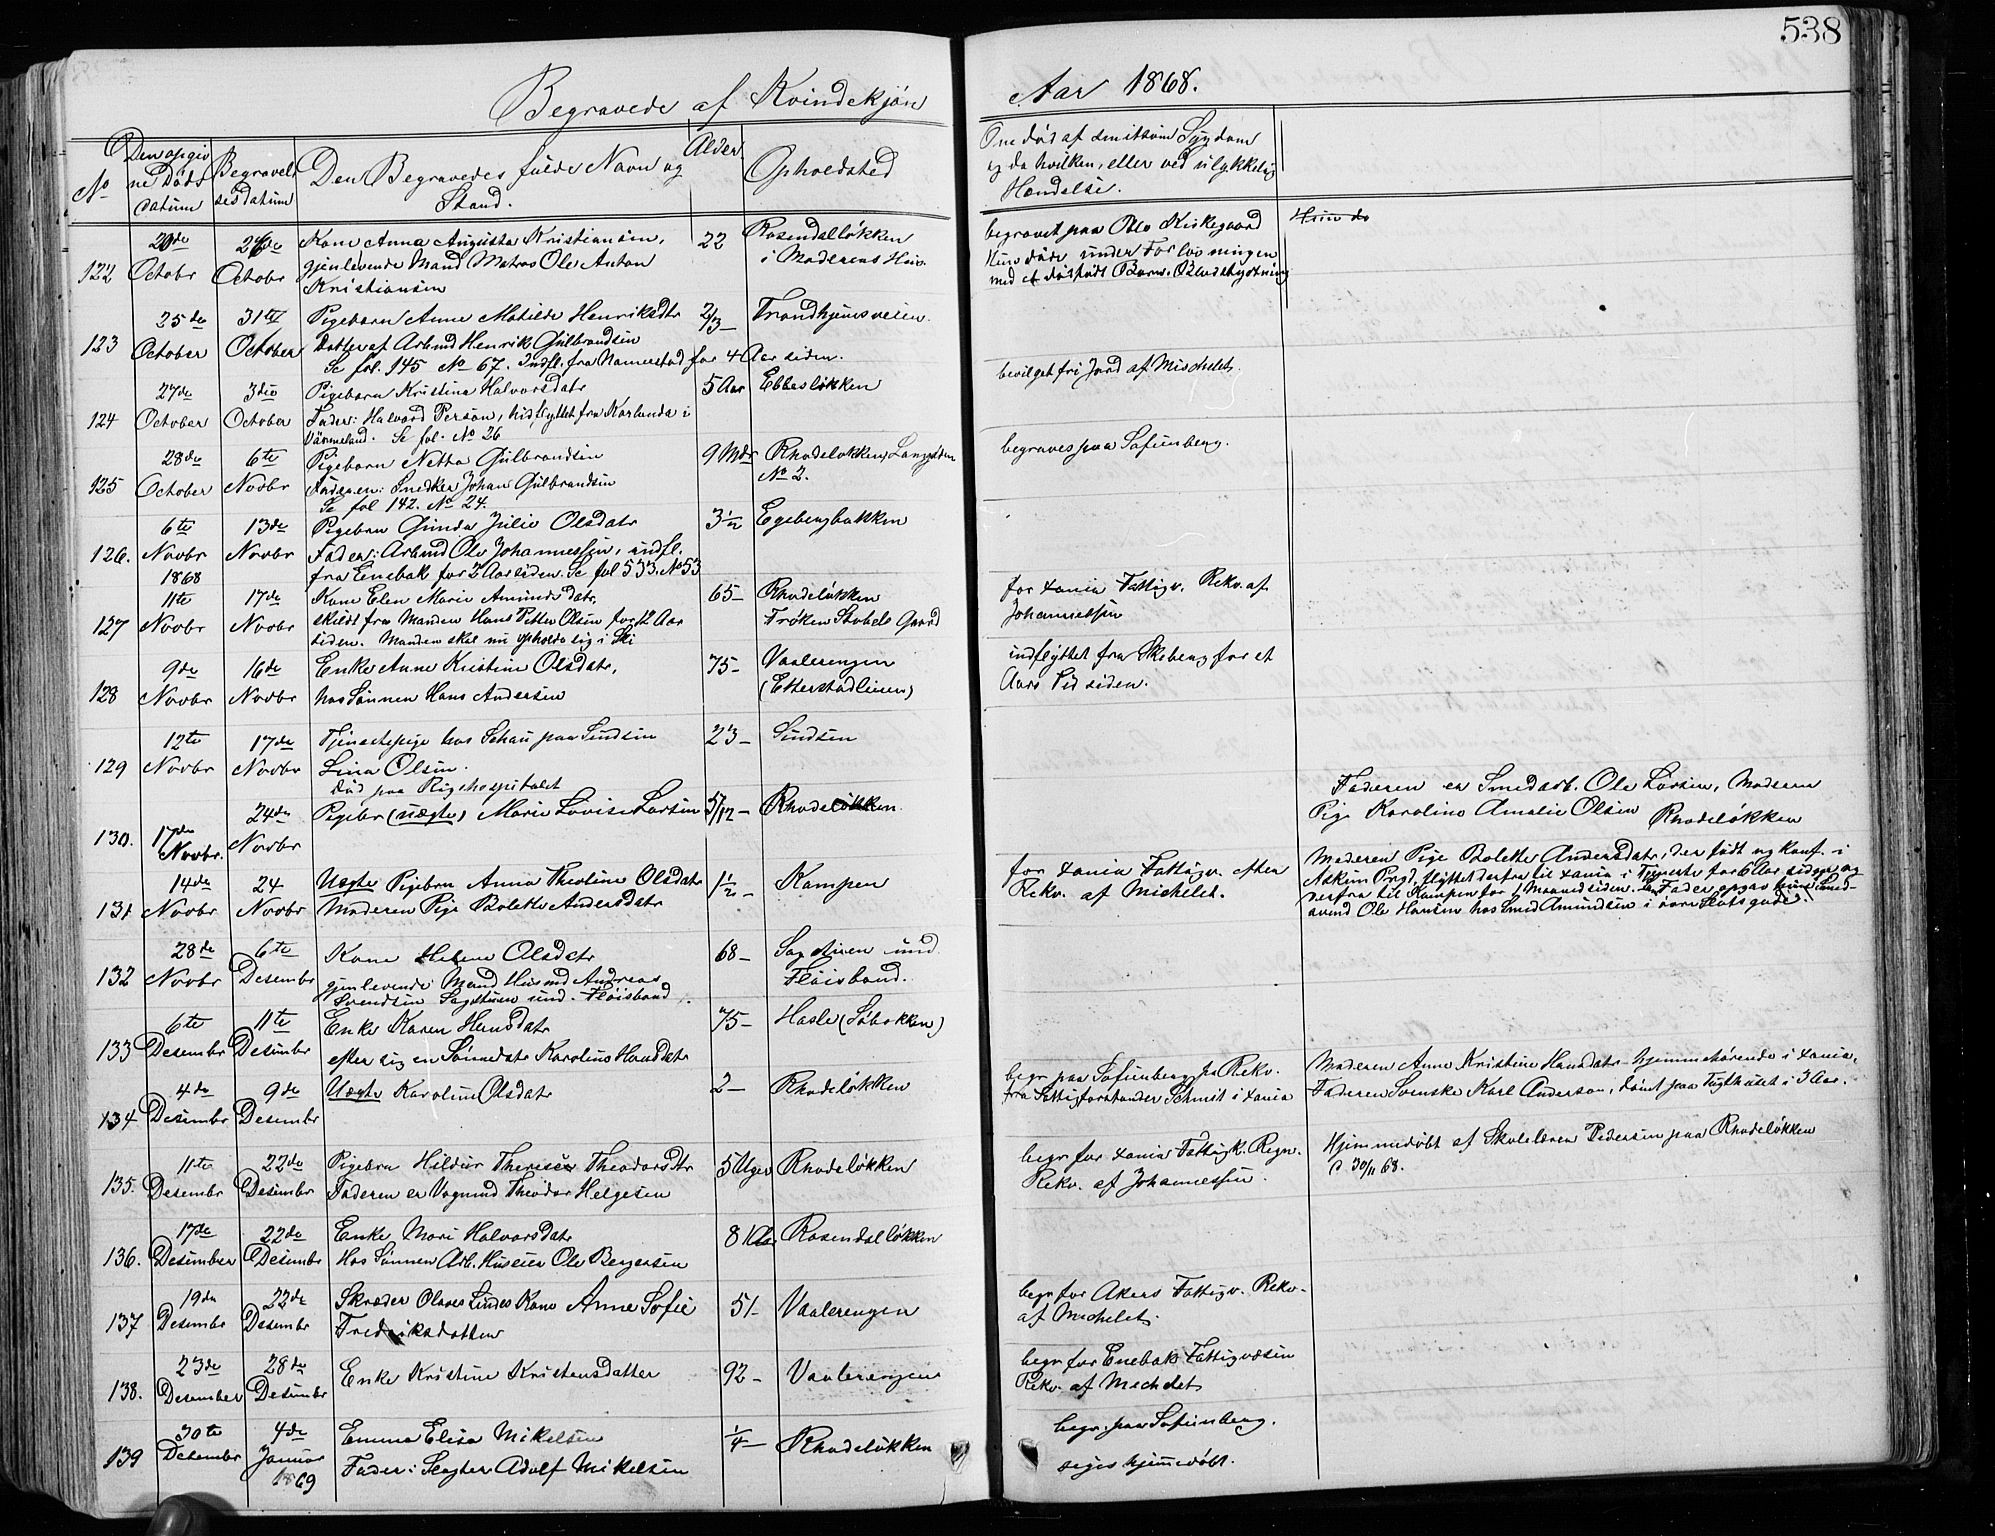 538
Begravede af Kvindekjøn
Aar 1868.
No
Den opgiv
ne Døds
datum
Begravel
sesdatum
Den Begravedes fulde Navn og
Stand.
Alder
Opholdsted
Om død af smitsom Sygdom
og da hvilken, eller ved ulykkelig
Hændelse.
122
20de
Octobr
26de
Octobr
Kone Anna Augusta Kristiansen,
gjenlevende Mand Matros Ole Anton
Kristiansen
22
Rosendalløkken
i Moderens Huus.
begravet paa Oslo Kirkegaard
Hun døde under Forløsningen
med et dødfødt Barn. Blodstyrtning
Hun do
123
25de
October
31te
October
Pigebarn Anne Matilde Henriksdtr
Datter af Arbmd Henrik Gulbrandsen
Se fol. 145 No 67. Indfl. fra Nannestad for 4 Aar siden.
2/3 –
Trondhjemsveien.
bevilget fri Jord af Michelet.
124
27de
October
3die
October
Pigebarn Kristina Halvorsdatr
Fader: Halvord Persson, hidflyttet fra Karlanda i
Värmeland. Se fol. No 26
5 Aar
Ebbesløkken
125
28de
October
6te
Novbr
Pigebarn Netta Gulbrandsen
Faderen: Snedker Johan Gulbrandsen
Se fol 142. No 24.
9 Mdr
Rhodeløkken, Langgaden
No 2.
begraves paa Sofienberg.
126.
6te
Novbr
1868
13de
Novbr
Pigebrn Gunda Julie Olsdatr
Fader: Arbmd Ole Johannessen, indfl.
fra Enebak for 2 Aar siden. Se fol 533. No 53
3½
Egebergbakken
127
11te
Novbr
17de
Novbr
Kone Elen Marie Amundsdatr,
skildt fra Manden Hans Petter Olsen for 12 Aar
siden. Manden skal nu opholde sig i Ski
65 –
Rhodeløkken
Frøken Stabels Gaard
for Xania Fattigv. Rekv. af
Johannessen
128
9de
Novbr
16de
Novbr
Enke Anne Kristine Olsdatr,
hos Sønnen Hans Andersen
75 –
Vaalerengen
(Etterstadlinien)
indflyttet fra Skeberg for et
Aars Tid siden.
129
12te
Novbr
17de
Novbr
Tjenestepige hos Schau paa Sindsen
Lina Olsen.
død paa Rigshospitalet
23 –
Sindsen
130.
17de
Novbr.
24de
Novbr
Pigebr (uægte) Marie Lovise Larsen
5/12 –
Rhodeløkken.
Faderen er Smedarb. Ole Larsen, Moderen
Pige Karoline Amalie Olsen Rhodeløkken
131
14de
Novbr
24
Novbr
Uægte Pigebrn Anna Theoline Olsdatr
Moderen Pige Bolette Andersdatr
1½ –
Kampen
for Xania Fattigv. efter
Rekv. af Michelet.
Moderen Pige Bolette Andersdatr, der født og Konf. i
Askim Prgd. flyttet derfra til Xania i Tjeneste for 6 Aar siden og
derfra til Kampen for 1 Maaned siden. Som Fader opgav hun Smed-
svend Ole Hansen hos Smed Amundsen i øvre Slotsgade.
132
28de
Novbr
6te
Desembr
Kone Helene Olsdatr
gjenlevende Mand Husmd Andreas
Svendsen Sagstuen und. Fløisbond.
68 –
Sagstuen und
Fløisbond.
133
6te
Desembr
11te
Desembr
Enke Karen Hansdatr
efter sig en Sønnedatr Karoline Hansdatr
75 –
Hasle (Løbakken)
134
4de
Desembr
9de
Desembr
Uægte Karoline Olsdatr
2 –
Rhodeløkken
begr. paa Sofienberg pa Rekv.
fra Fattigforstander Schmit i Xania
Moderen Anne Kristine Hansdatr hjemmehørende i Xania.
Faderen Svenske Karl Anderson, dømt paa Tugthuset i 3 Aar.
135.
11te
Desembr
22de
Desembr
Pigebrn Hildur Therese Theodorsdtr
Faderen er Vognmd Theodor Helgesen
5 Uger
Rhodeløkken
begr for Xania Fattigk. Regn.
Rekv. af Johannessen.
Hjemmedøbt af Skolelærer Pedersen paa Rhodeløkken
d 30/11 68.
136.
17de
Desember
22de
Desembr
Enke Mari Halvorsdatr
Hos Sønnen Arb. Huseier Ole Bergersen
81 Aar
Rosendalløkken
137
19de
Desembr
22de
Desembr
Skræder Olaves Lindes Kone Anne Sofie
Fredriksdatter
51 –
Vaalerengen
begr for Akers Fattigv. Rekv.
af Michelet.
138.
23de
Desember
28de
Desembr
Enke Kristine Kristensdatter
92 –
Vaalerengen
begr for Enebak Fattigvæsen
Rekv. af Michelet
139
30te
Desembr
4de
Januar
1869
Emma Elisa Mikelsen
Fader: Slagter Adolf Mikelsen
1/4 –
Rhodeløkken
begr. paa Sofienberg.
siges hjemmedøbt.